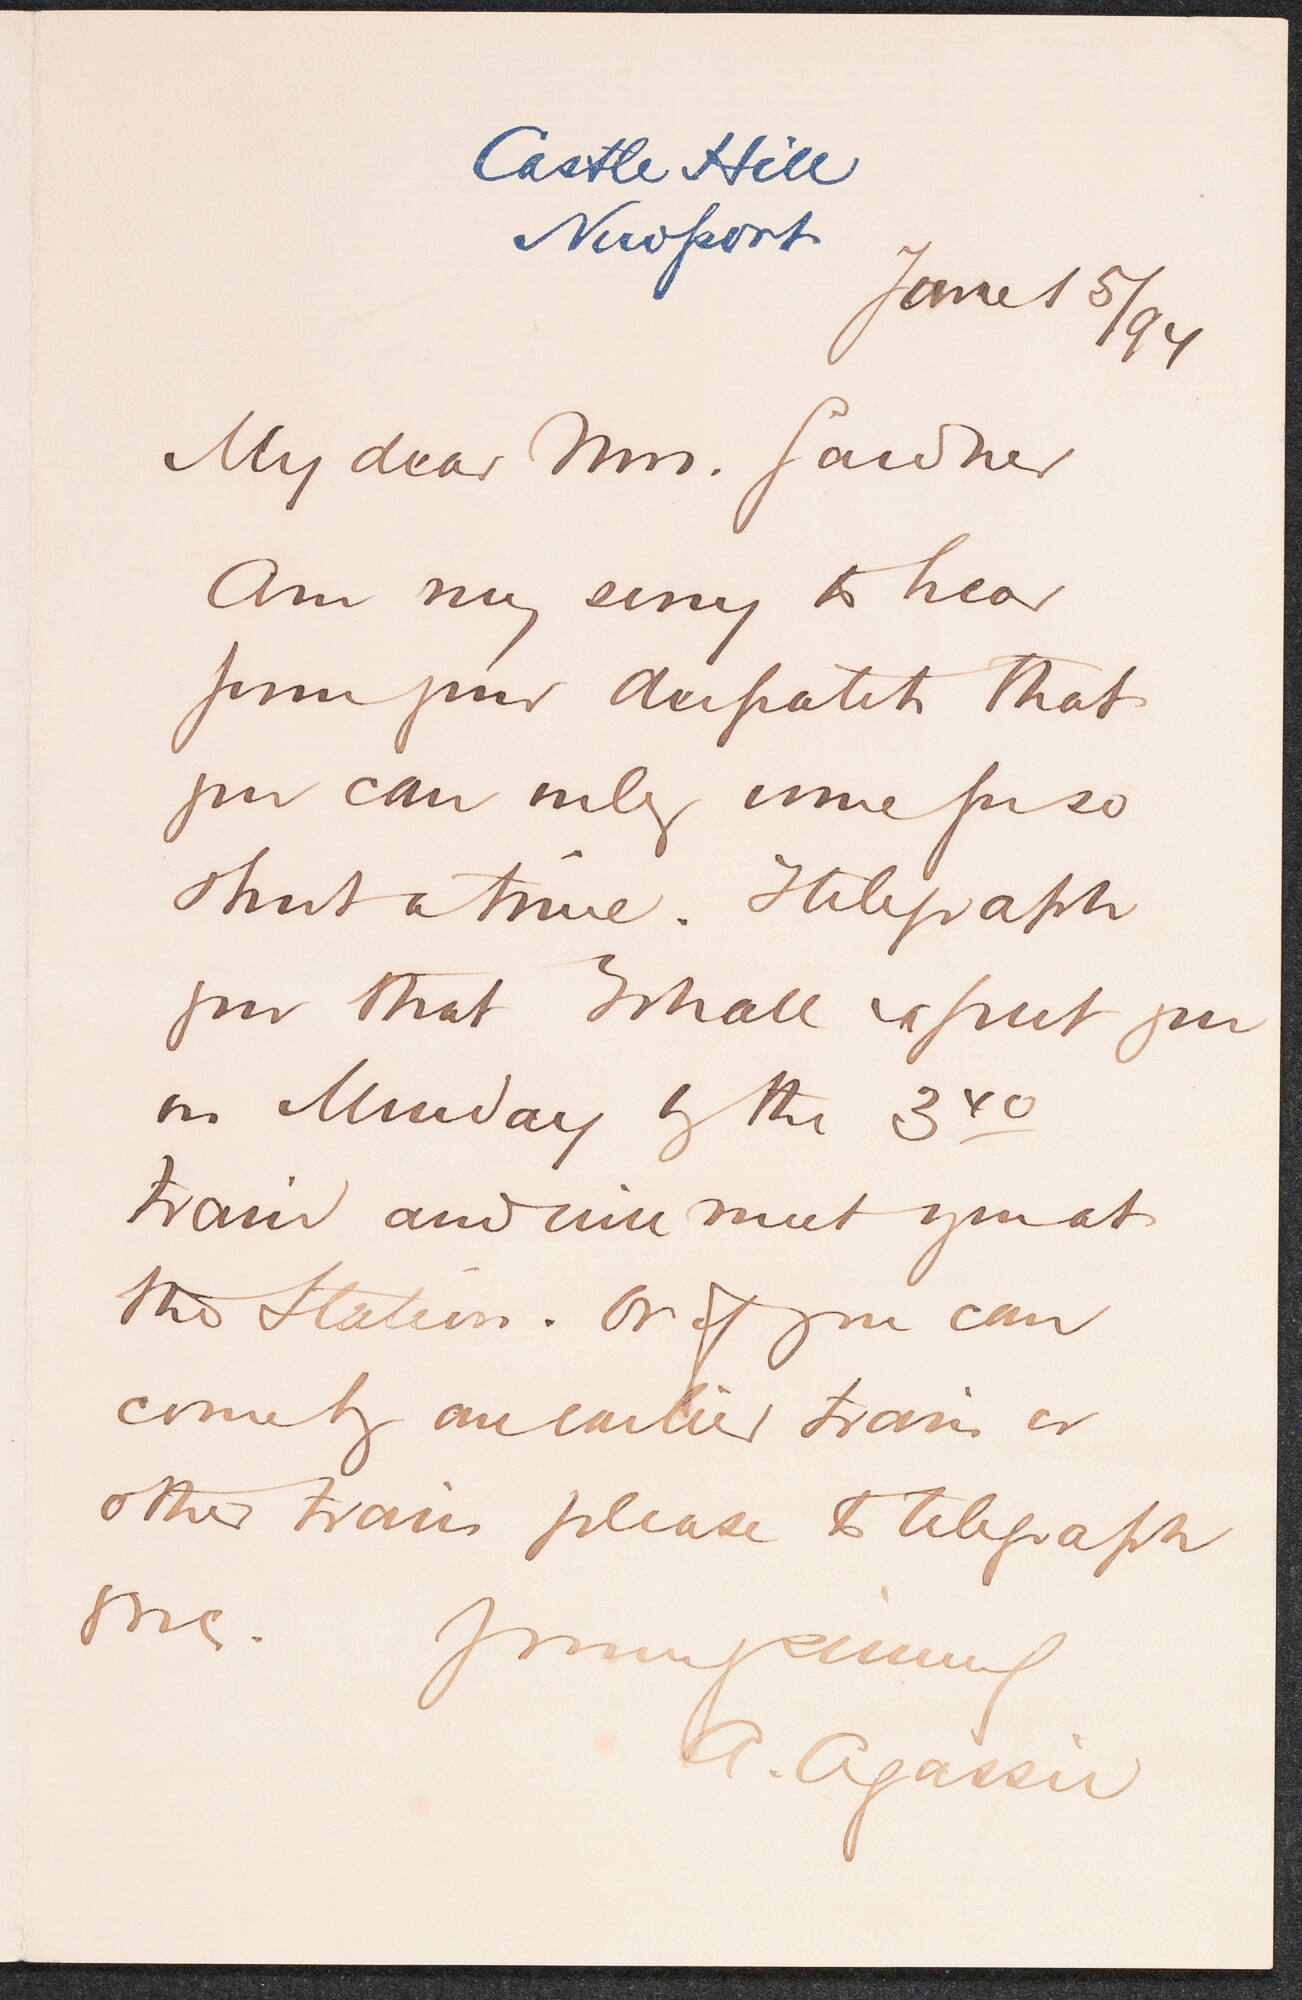 Castle Hill
Newport
June 15/94
My dear Mrs. Gardner
Am very sorry to hear
from your despatch that
you can only come for so
short a time. I telegraph
you that I shall expect you
on Monday by the 3 40
train and will meet you at
the Station. Or if you can
come by an earlier train or
other train please to telegraph
me.
Yours very sincerely
A. Agassiz